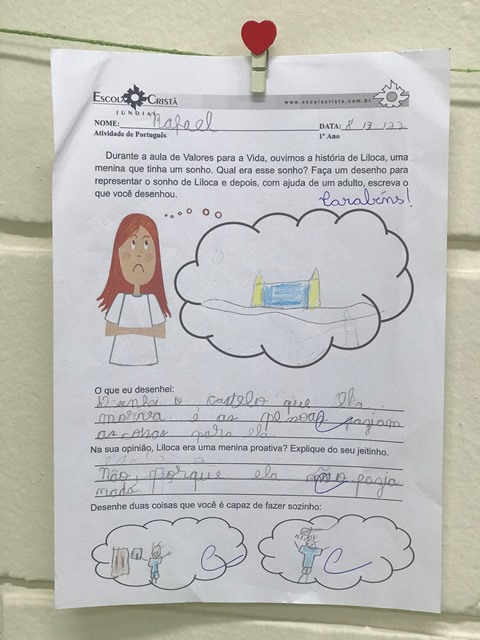 ESCOLA CRISTÃ
JUNDIAÍ
www.escolacrista.com.br
NOME: Rafael DATA: 8 / 3 / 22
Atividade de Português 1º Ano
Durante a aula de Valores para a Vida, ouvimos a história de Liloca, uma
menina que tinha um sonho. Qual era esse sonho? Faça um desenho para
representar o sonho de Liloca e depois, com ajuda de um adulto, escreva o
que você desenhou.
Parabéns!
O que eu desenhei:
o castelo que ela
morava é as pesoas faziam
as coisas para ela
Na sua opinião, Liloca era uma menina proativa? Explique do seu jeitinho.
Não, porque ela não fazia
nada
Desenhe duas coisas que você é capaz de fazer sozinho: